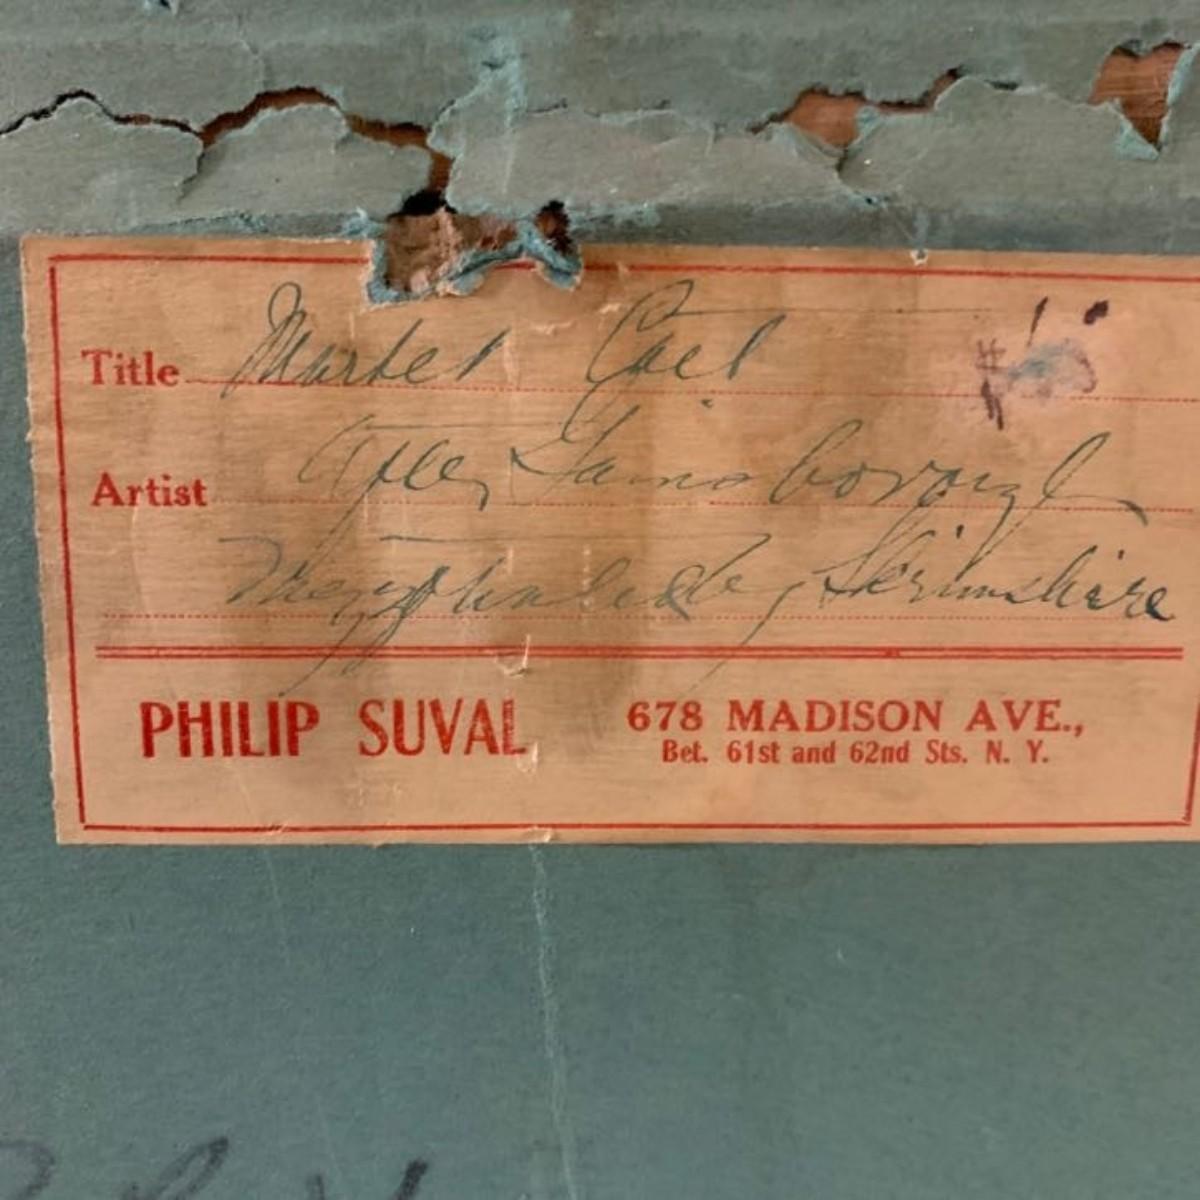 Title Market Cart
Artist After Gainsborough
Mezzotinted by Skrimshire
PHILIP SUVAL 678 MADISON AVE.,
Bet. 61st and 62nd Sts. N. Y.